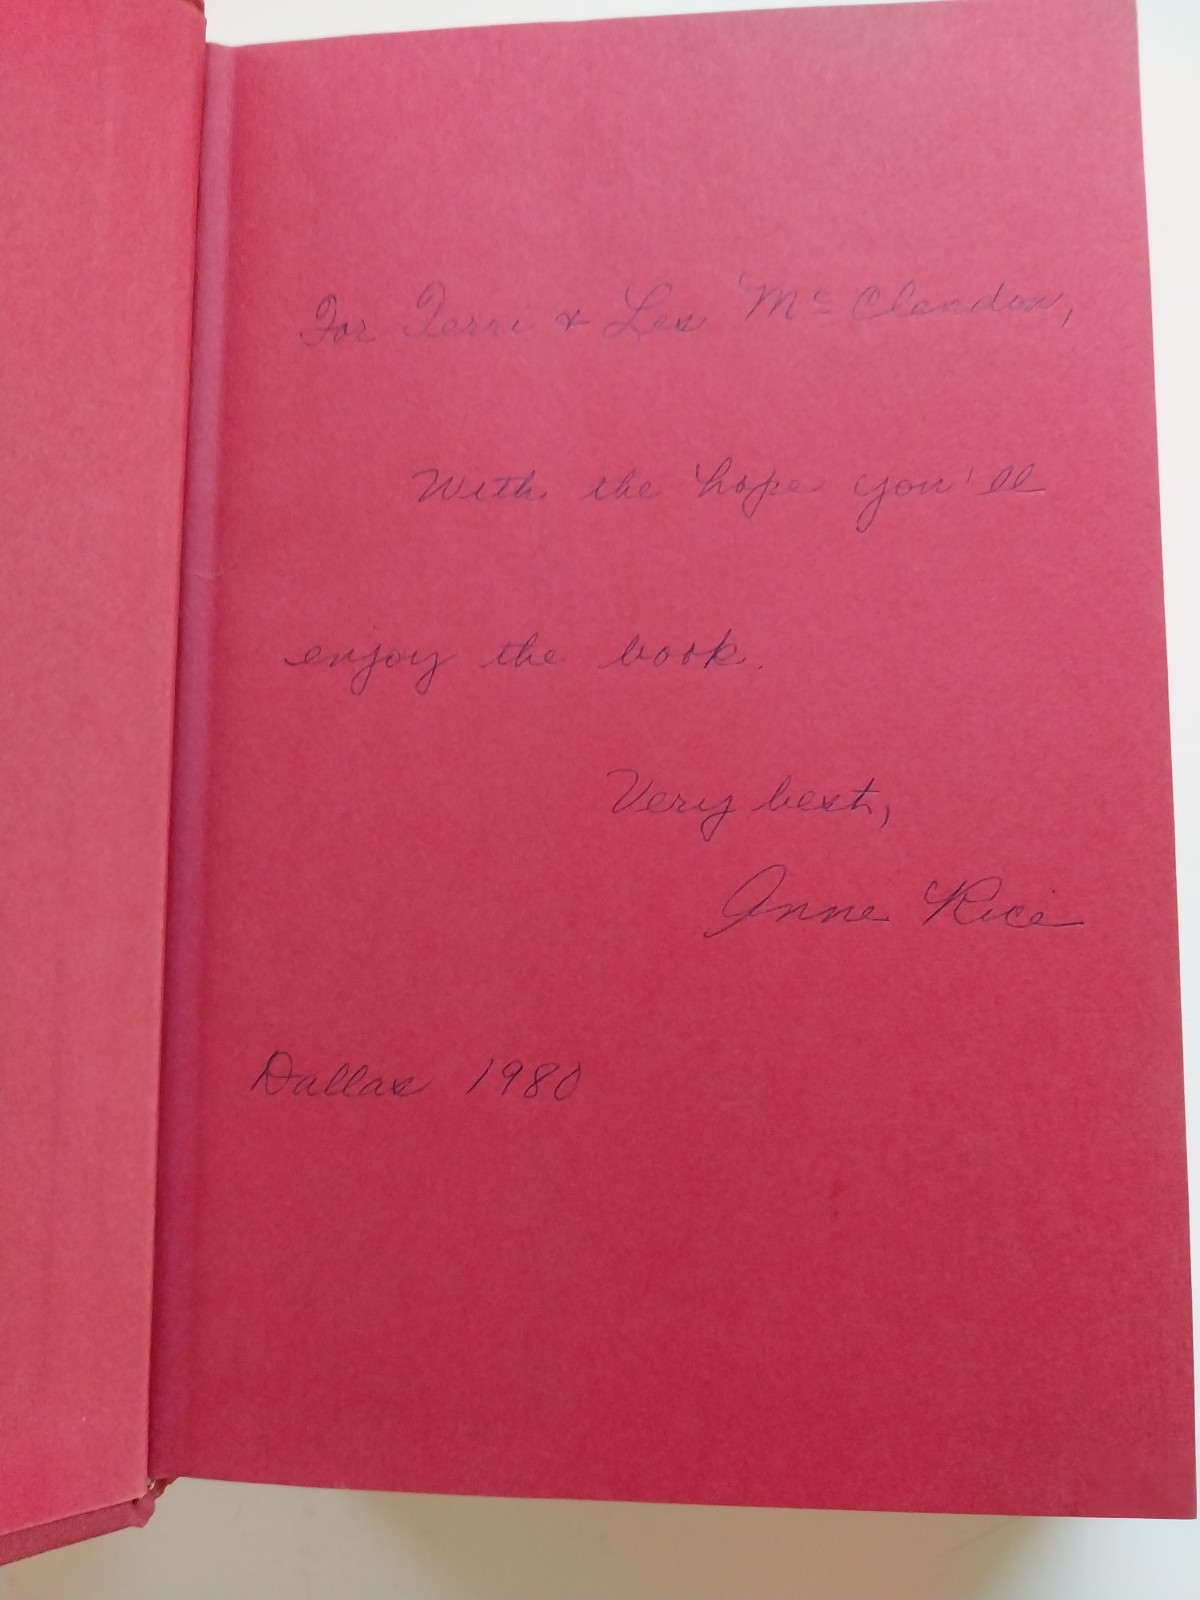 For Terri & Les McClendon,
With the hope you'll
enjoy the book.
Very best,
Anne Rice
Dallas 1980